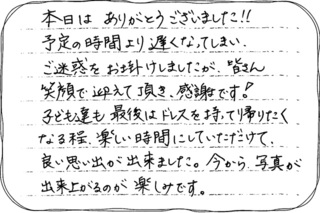 本日は ありがとうございました!!
予定の時間より 遅くなってしまい、
ご迷惑をお掛けしましたが、皆さん
笑顔で 迎えて頂き、感謝です!
子ども達も 最後はドレスを持って帰りたく
なる程、楽しい時間にしていただけて、
良い思い出が出来ました。今から、写真が
出来上がるのが 楽しみです。